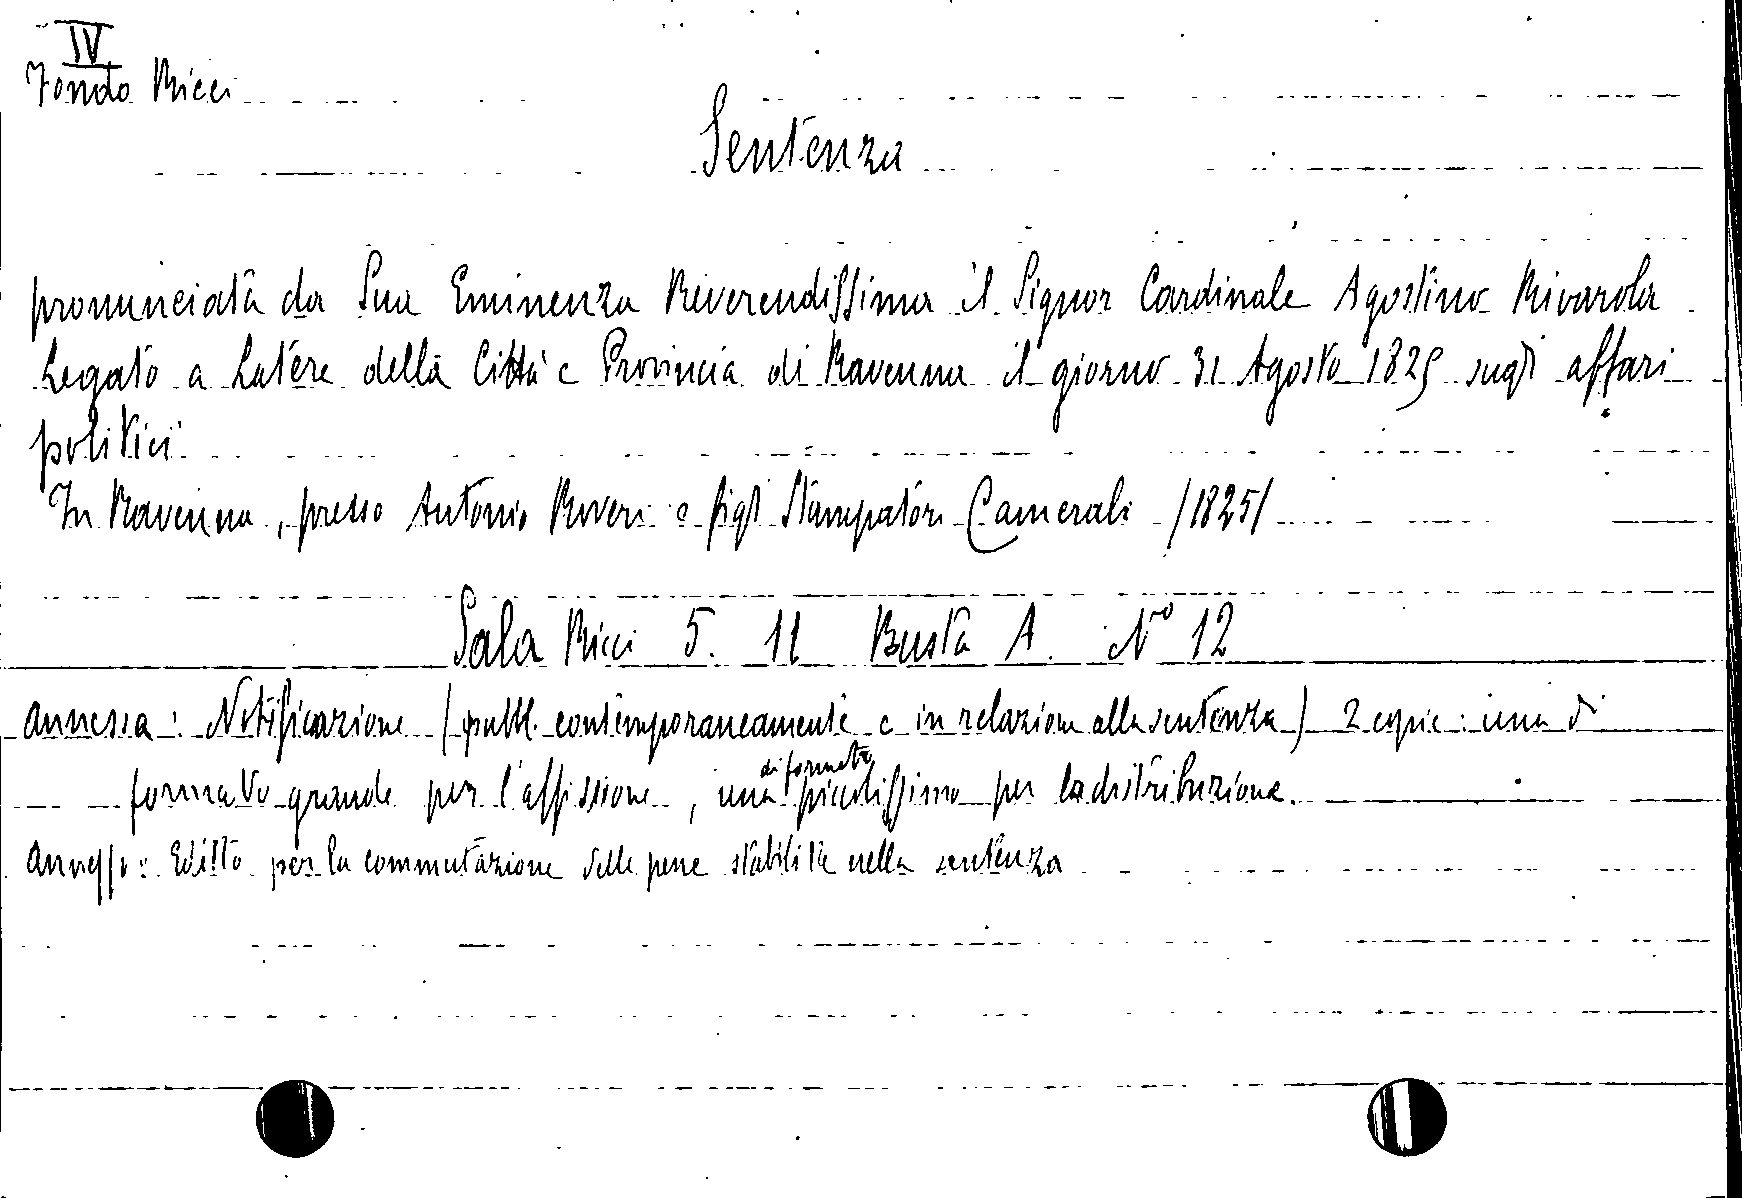 IV
Fondo Ricci
Sentenza
pronunciata da Sua Eminenza Reverendissima il Signor Cardinale Agostino Rivarola
Legato a Latere della Città e Provincia di Ravenna il giorno 31 Agosto 1825 sugli affari
politici
In Ravenna, presso Antonio Roveri e figli Stampatori Camerali /1825/
Sala Ricci 5. 11 Busta A. N° 12
annessa: Notificazione (pubbl. contemporaneamente e in relazione alla sentenza) 2 copie: una di
formato grande per l'affissione, una di formato piccolissimo per la distribuzione.
Annesso: Editto per la commutazione delle pene stabilite nella sentenza